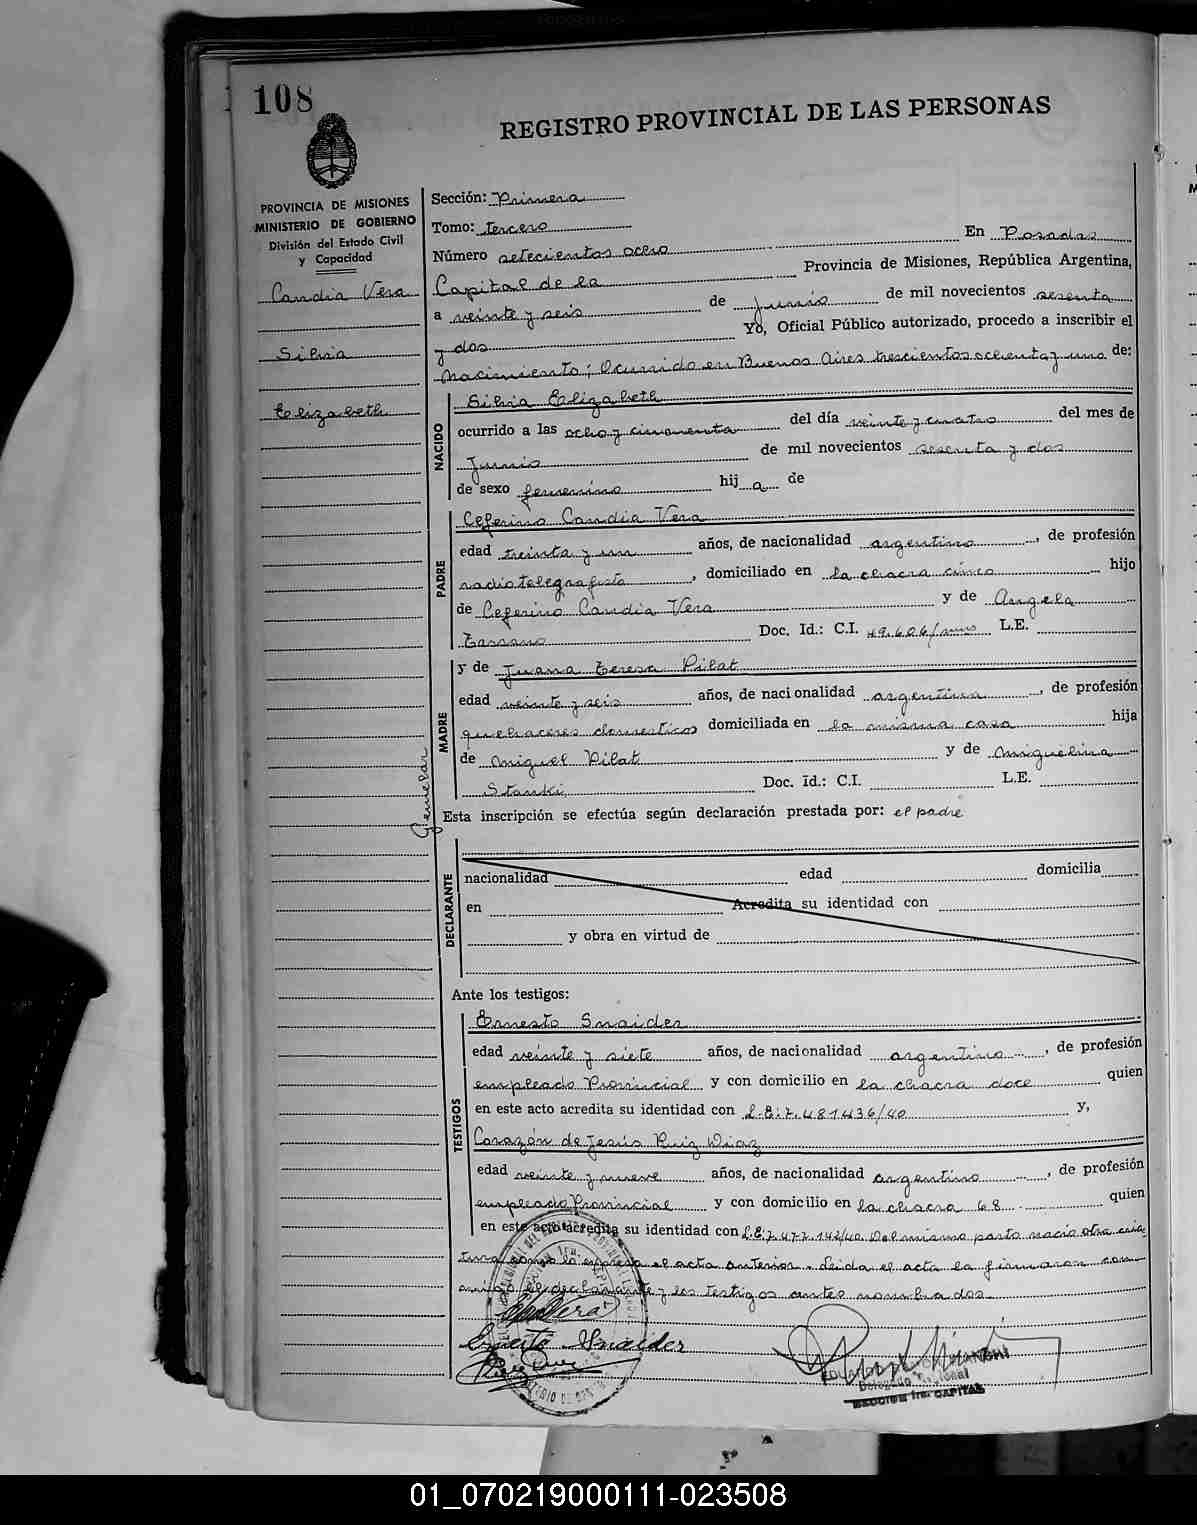 108
REGISTRO PROVINCIAL DE LAS PERSONAS
PROVINCIA DE MISIONES
MINISTERIO DE GOBIERNO
División del Estado Civil
y Capacidad
Candia Vera
Silvia
Elizabeth
Gemelar
Sección: Primera
Tomo: tercero
Número setecientos ocho En Posadas
Capital de la Provincia de Misiones, República Argentina,
a veinte y seis de Junio de mil novecientos sesenta
y dos Yo, Oficial Público autorizado, procedo a inscribir el
Nacimiento; Ocurrido en Buenos Aires trescientos ochenta y uno de:
NACIDO
Silvia Elizabeth
ocurrido a las ocho y cincuenta del día veinte y cuatro del mes de
Junio de mil novecientos sesenta y dos
de sexo femenino hij a de
PADRE
Ceferino Candia Vera
edad treinta y un años, de nacionalidad argentino, de profesión
radiotelegrafista, domiciliado en la chacra cinco hijo
de Ceferino Candia Vera y de Angela
Doc. Id.: C.I. 49.606/mnes L.E.
MADRE
y de Juana Teresa Pilat
edad veinte y seis años, de nacionalidad argentina, de profesión
quehaceres domesticos domiciliada en la misma casa hija
de Miguel Pilat y de Miguelina
Stanki Doc. Id.: C.I. L.E.
Esta inscripción se efectúa según declaración prestada por: el padre
DECLARANTE
nacionalidad edad domicilia
en Acredita su identidad con
y obra en virtud de
Ante los testigos:
TESTIGOS
Ernesto Snaider
edad veinte y siete años, de nacionalidad argentino, de profesión
empleado Provincial y con domicilio en la chacra doce quien
en este acto acredita su identidad con L.E: 7.481436/40 y,
Corazón de Jesús Ruiz Diaz
edad veinte y nueve años, de nacionalidad argentino, de profesión
empleado Provincial y con domicilio en la chacra 68 quien
en este acto acredita su identidad con L.E: 7.477.142/40. Del mismo parto nació otra cria
tura como lo expresa el acta anterior. Leida el acta la firmaron con
migo el declarante y los testigos antes nombrados.
Ernesto Snaider
Delegado
SECCION 1ra. CAPITAL
01_070219000111-023508